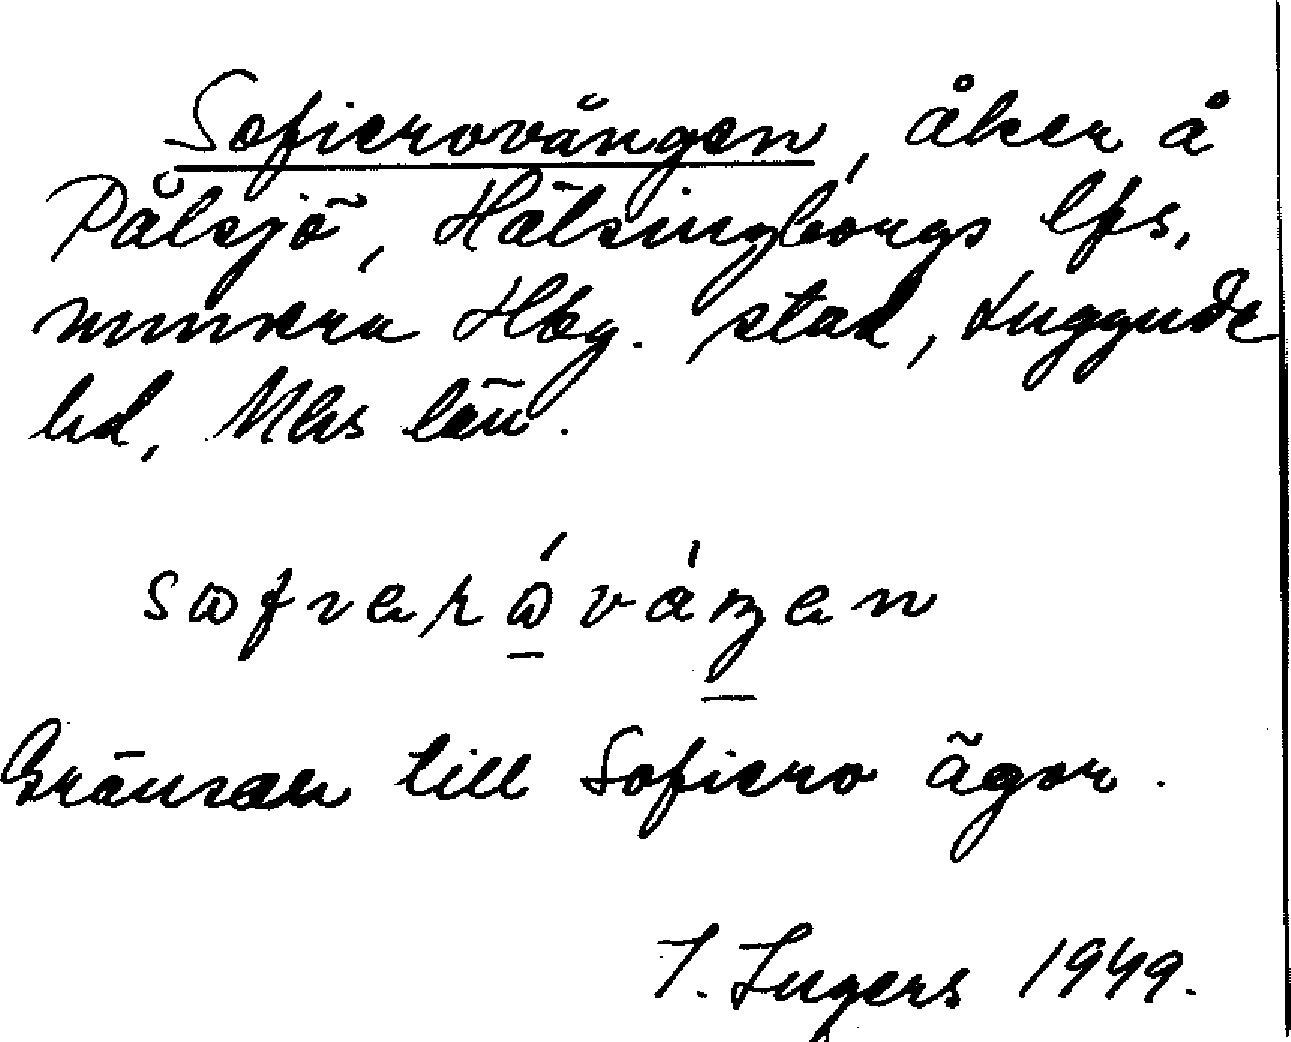 Sofierovången, åker å
Pålsjö, Hälsingborgs lfs,
numera Hbg. stad, Luggude
hd, Mhs län.
sɷfierɷ́váŋen
Gränsar till Sofiero ägor.
I. Ingers 1949.